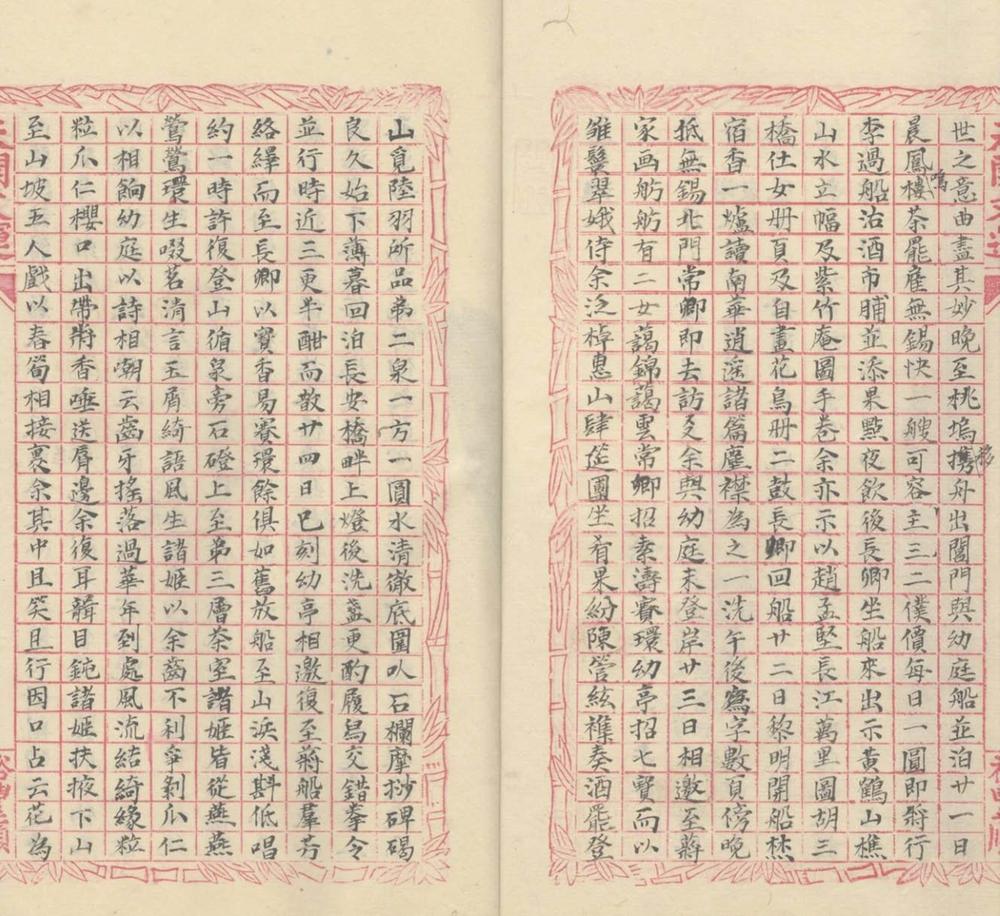 世之意曲盡其妙晚至桃塢移舟出閶門與幼庭船並泊廿一日
晨鳳鳴樓茶罷雇無錫快一艘可容主三二僕價每日一圓即將行
李過船治酒市脯並添果點夜飲後長卿坐船來出示黃鶴山樵
山水立幅及紫竹庵圖手卷余亦示以趙孟堅長江萬里圖胡三
橋仕女册頁及自畫花鳥册二鼓長卿回船廿二日黎明開船焚
宿香一爐讀南華逍遙諸篇塵襟為之一洗午後寫字數頁傍晚
抵無錫北門常卿即去訪艾余與幼庭未登岸廿三日相邀至蔣
家画舫舫有二女藹錦藹雲常卿招素濤賽環幼亭招七寶而以
雏鬟翠娥侍余泛棹惠山肆筵團坐肴果紛陳管絃襍奏酒罷登
山覓陸羽所品第二泉一方一圓水清徹底圍以石欄摩挱碑碣
良久始下薄暮回泊長安橋畔上燈後洗盞更酌履舄交錯拳令
並行時近三更半酣而散廿四日巳刻幼亭相邀復至蔣船羣芳
絡繹而至長卿以寶香易賽環餘俱如舊放船至山浜淺斟低唱
約一時許復登山循泉旁石磴上至第三層茶室諸姬皆從燕燕
鶯鶯環生啜茗清言玉屑綺語風生諸姬以余齒不利爭剝瓜仁
以相餉幼庭以詩相嘲云齒牙搖落過華年到處風流結綺緣粒
粒爪仁櫻口出帶將香唾送脣邊余復耳聾目鈍諸姬扶掖下山
至山坡五人戲以春筍相接裹余其中且笑且行因口占云花為